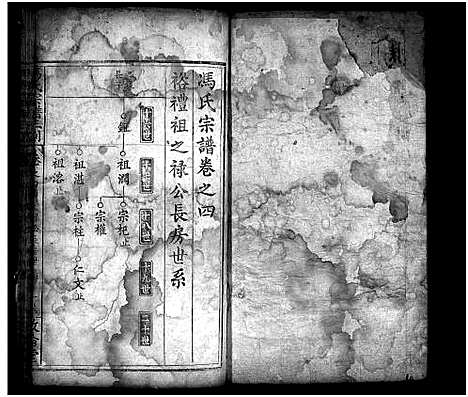 馮氏宗譜卷之四
裕禮祖之祿公長房世系
十六世
十七世
十八世
十九世
二十世
祖潤
宗杞止
宗權
祖湛
宗桂
仁文止
祖溶止